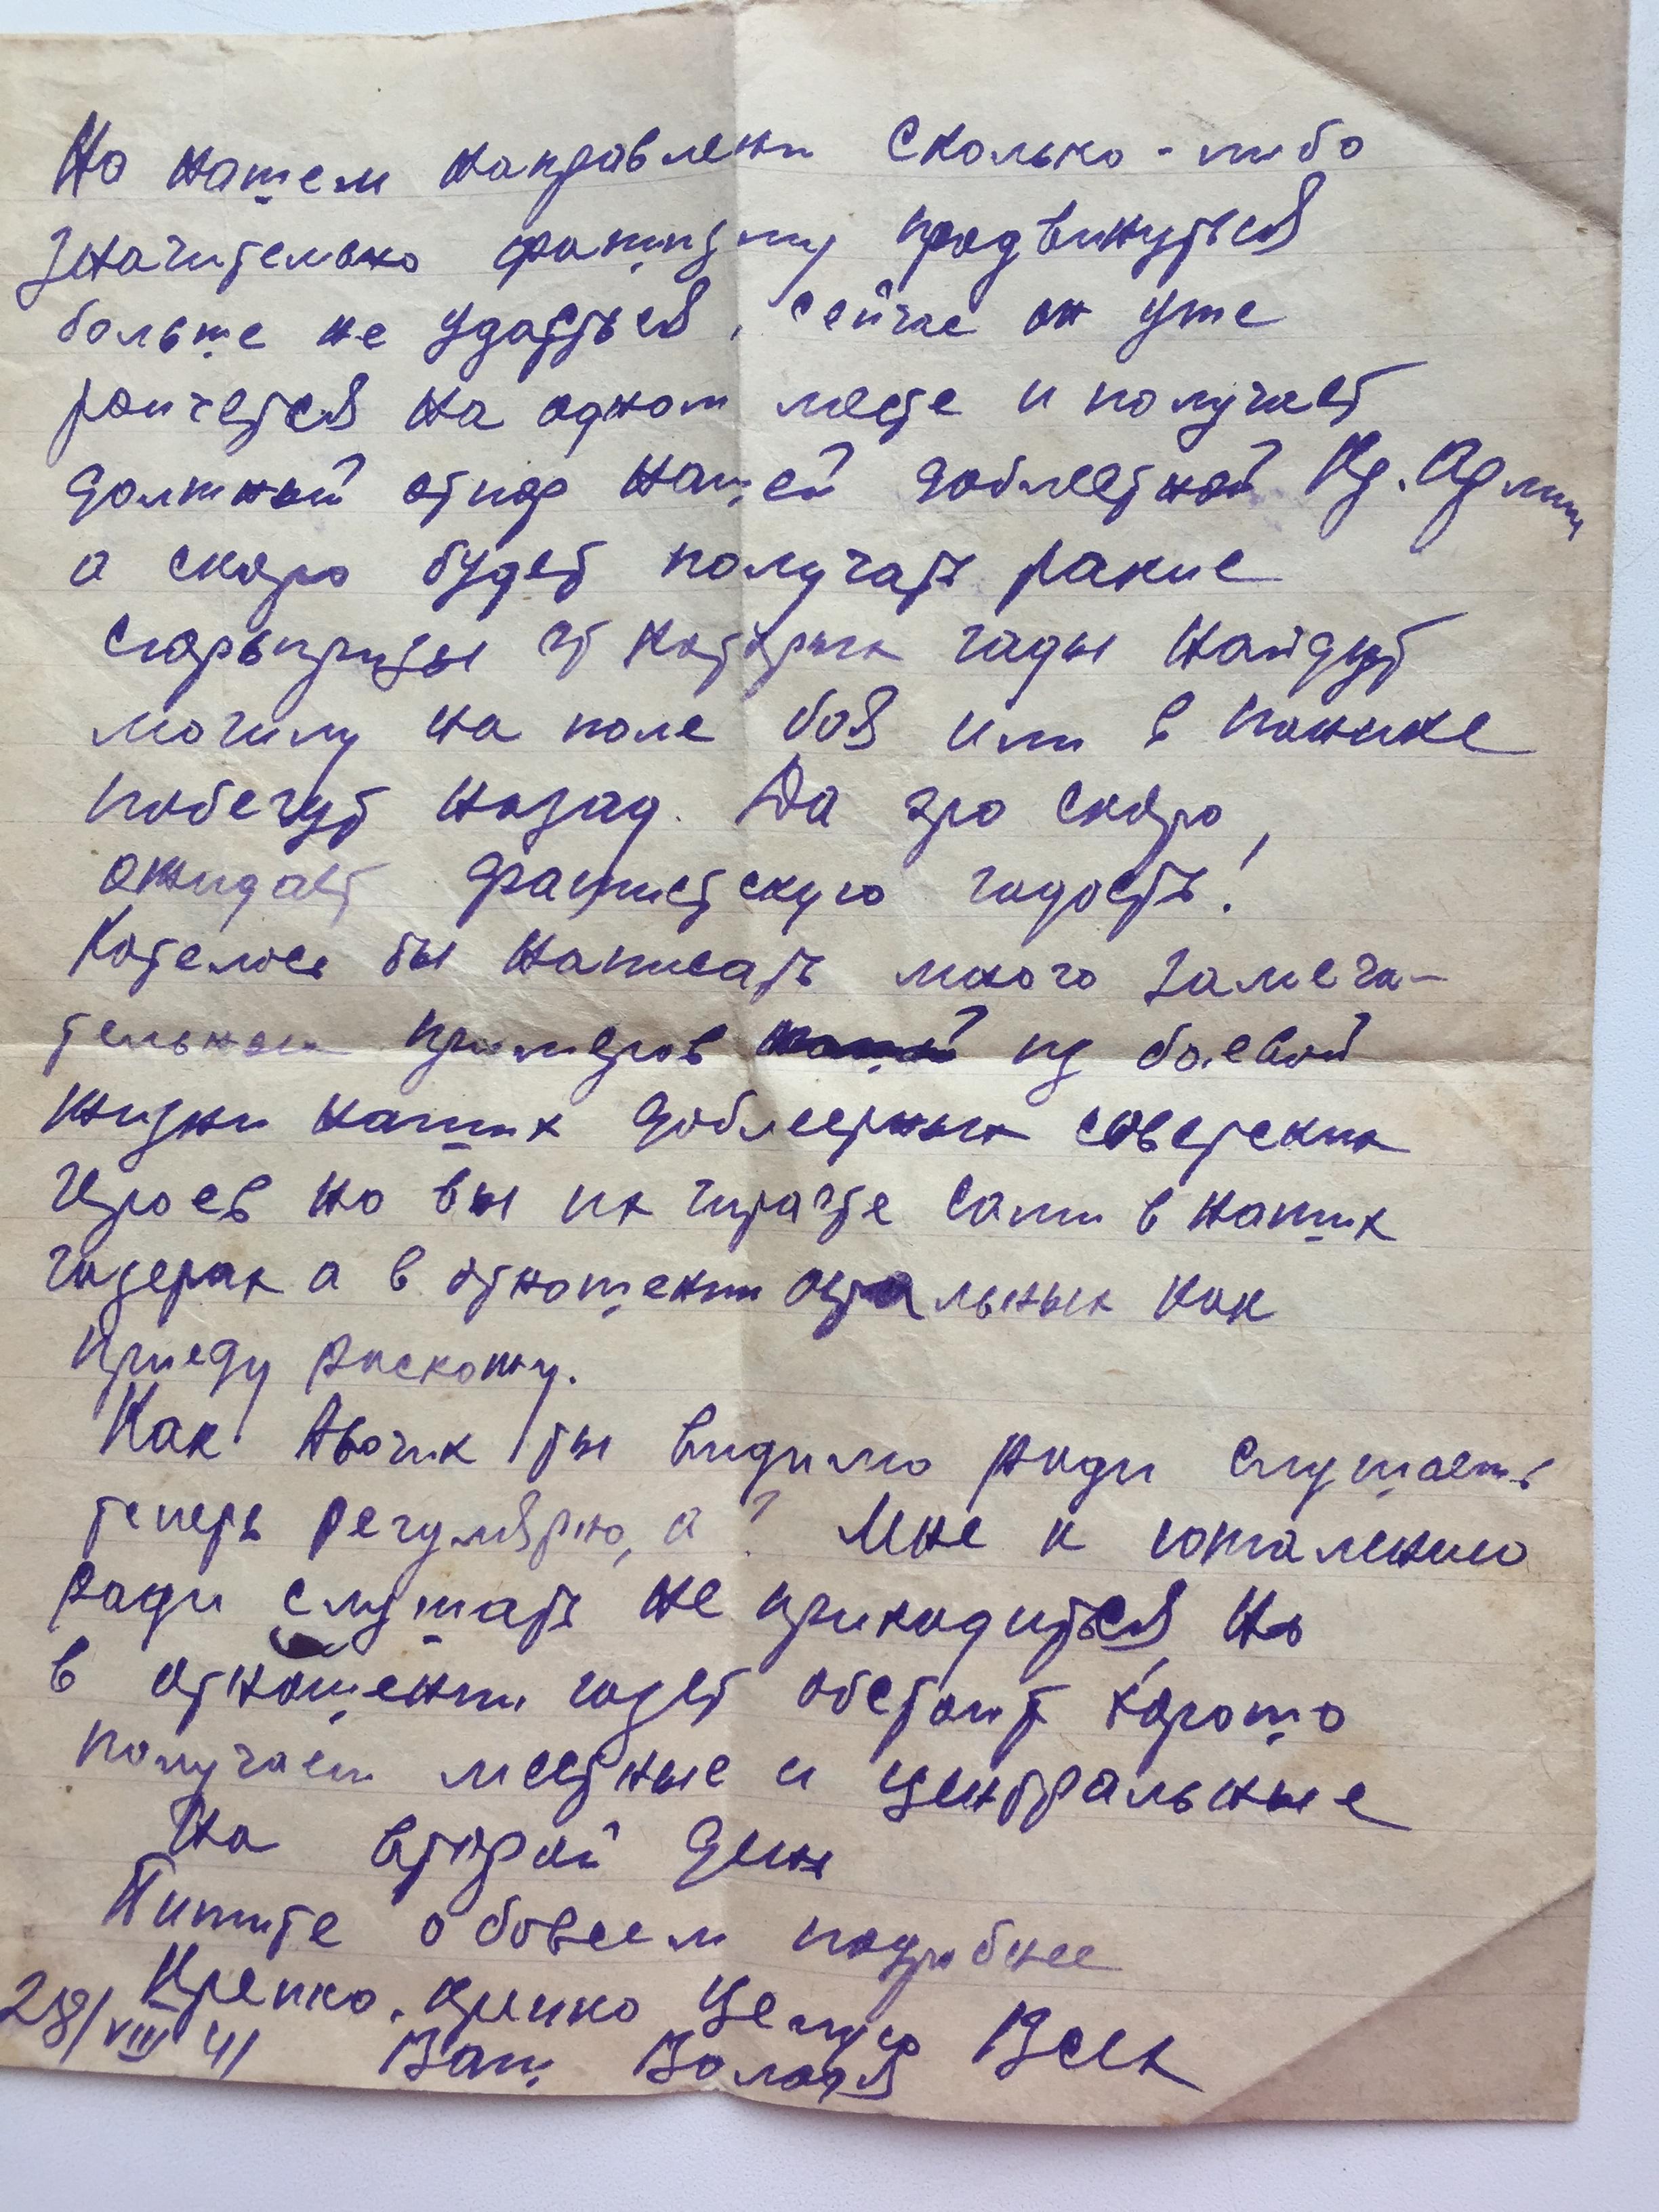 На нашем направлени сколько-либо
значительно фашизму продвинуться
больше не удасться, сейчас он уже
топчется на одном месте и получает
должный отпор нашей доблестной Кр. Армии
а скоро будет получать такие
сюрьпризы от которых гады найдут
могилу на поле боя или в панике
побегут назад. Да это скоро,
ожидает фашистскую гадость!
Хотелось бы написать много замеча-
тельных примеров из боевой
жизни наших доблестных советских
героев но вы их читаете сами в наших
газетах а в отношении остальных как
приеду раскажу.
Как Авочик ты видимо ради слушаешь
теперь регулярно, а? Мне к сожалению
ради слушать не приходиться, но
в отношении газет обстоит хорошо
получаем местные и центральные
на второй день
Пишите обо всем подробнее
Крепко, крепко целую Всех
28/VIII 41 Ваш Володя